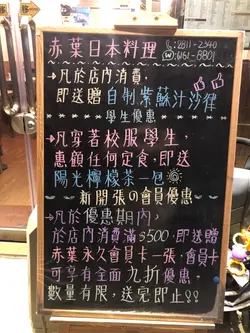 赤葉日本料理
2811-2340
6161-8801
凡於店內消費，
即送贈自制紫蘇汁沙律
學生優惠
凡穿著校服學生，
惠顧任何定食，即送
陽光檸檬茶一包
新開張の會員優惠
凡於優惠期內，
於店內消費滿$500，即送贈
赤葉永久會員卡一張，會員卡
可享有全面九折優惠，
數量有限，送完即止!!